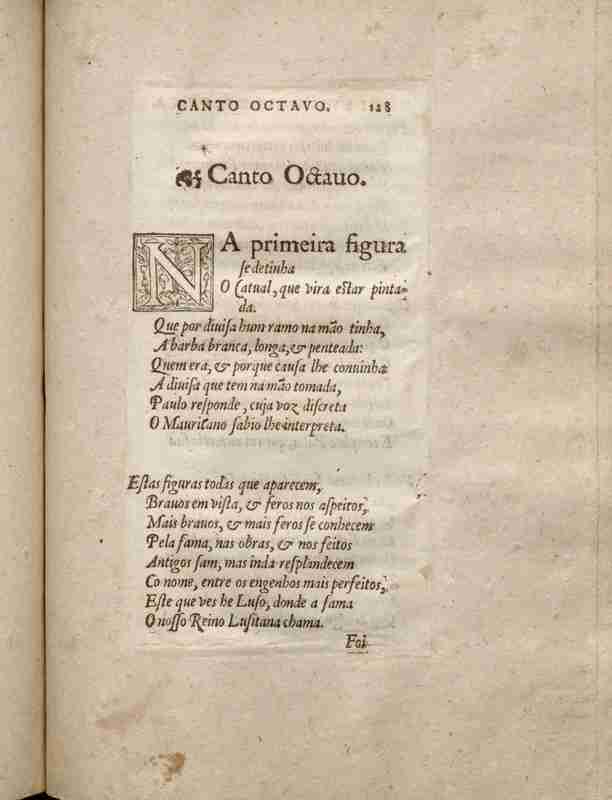 CANTO OCTAVO. 128
Canto Octauo.
NA primeira figura
ſe detinha
O Catual, que vira eſtar pinta-
da.
Que por diuiſa hum ramo na mão tinha,
A barba branca, longa, & penteada:
Quem era, & porque cauſa lhe conuinha
A diuiſa que tem na mão tomada,
Paulo reſponde, cuja voz diſcreta
O Mauritano ſabio lhe interpreta.
Eſtas figuras todas que aparecem,
Brauos em viſta, & feros nos aſpeitos,
Mais brauos, & mais feros ſe conhecem
Pela fama, nas obras, & nos feitos
Antigos ſam, mas inda reſplandecem
Co nome, entre os engenhos mais perfeitos,
Eſte que ves he Luſo, donde a fama
O noſſo Reino Luſitana chama.
Foi